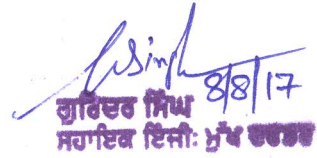 Singh
8/8/17
ਗੁਰਿੰਦਰ ਸਿੰਘ
ਸਹਾਇਕ ਇੰਜੀ: ਮੁੱਖ ਦਫਤਰ